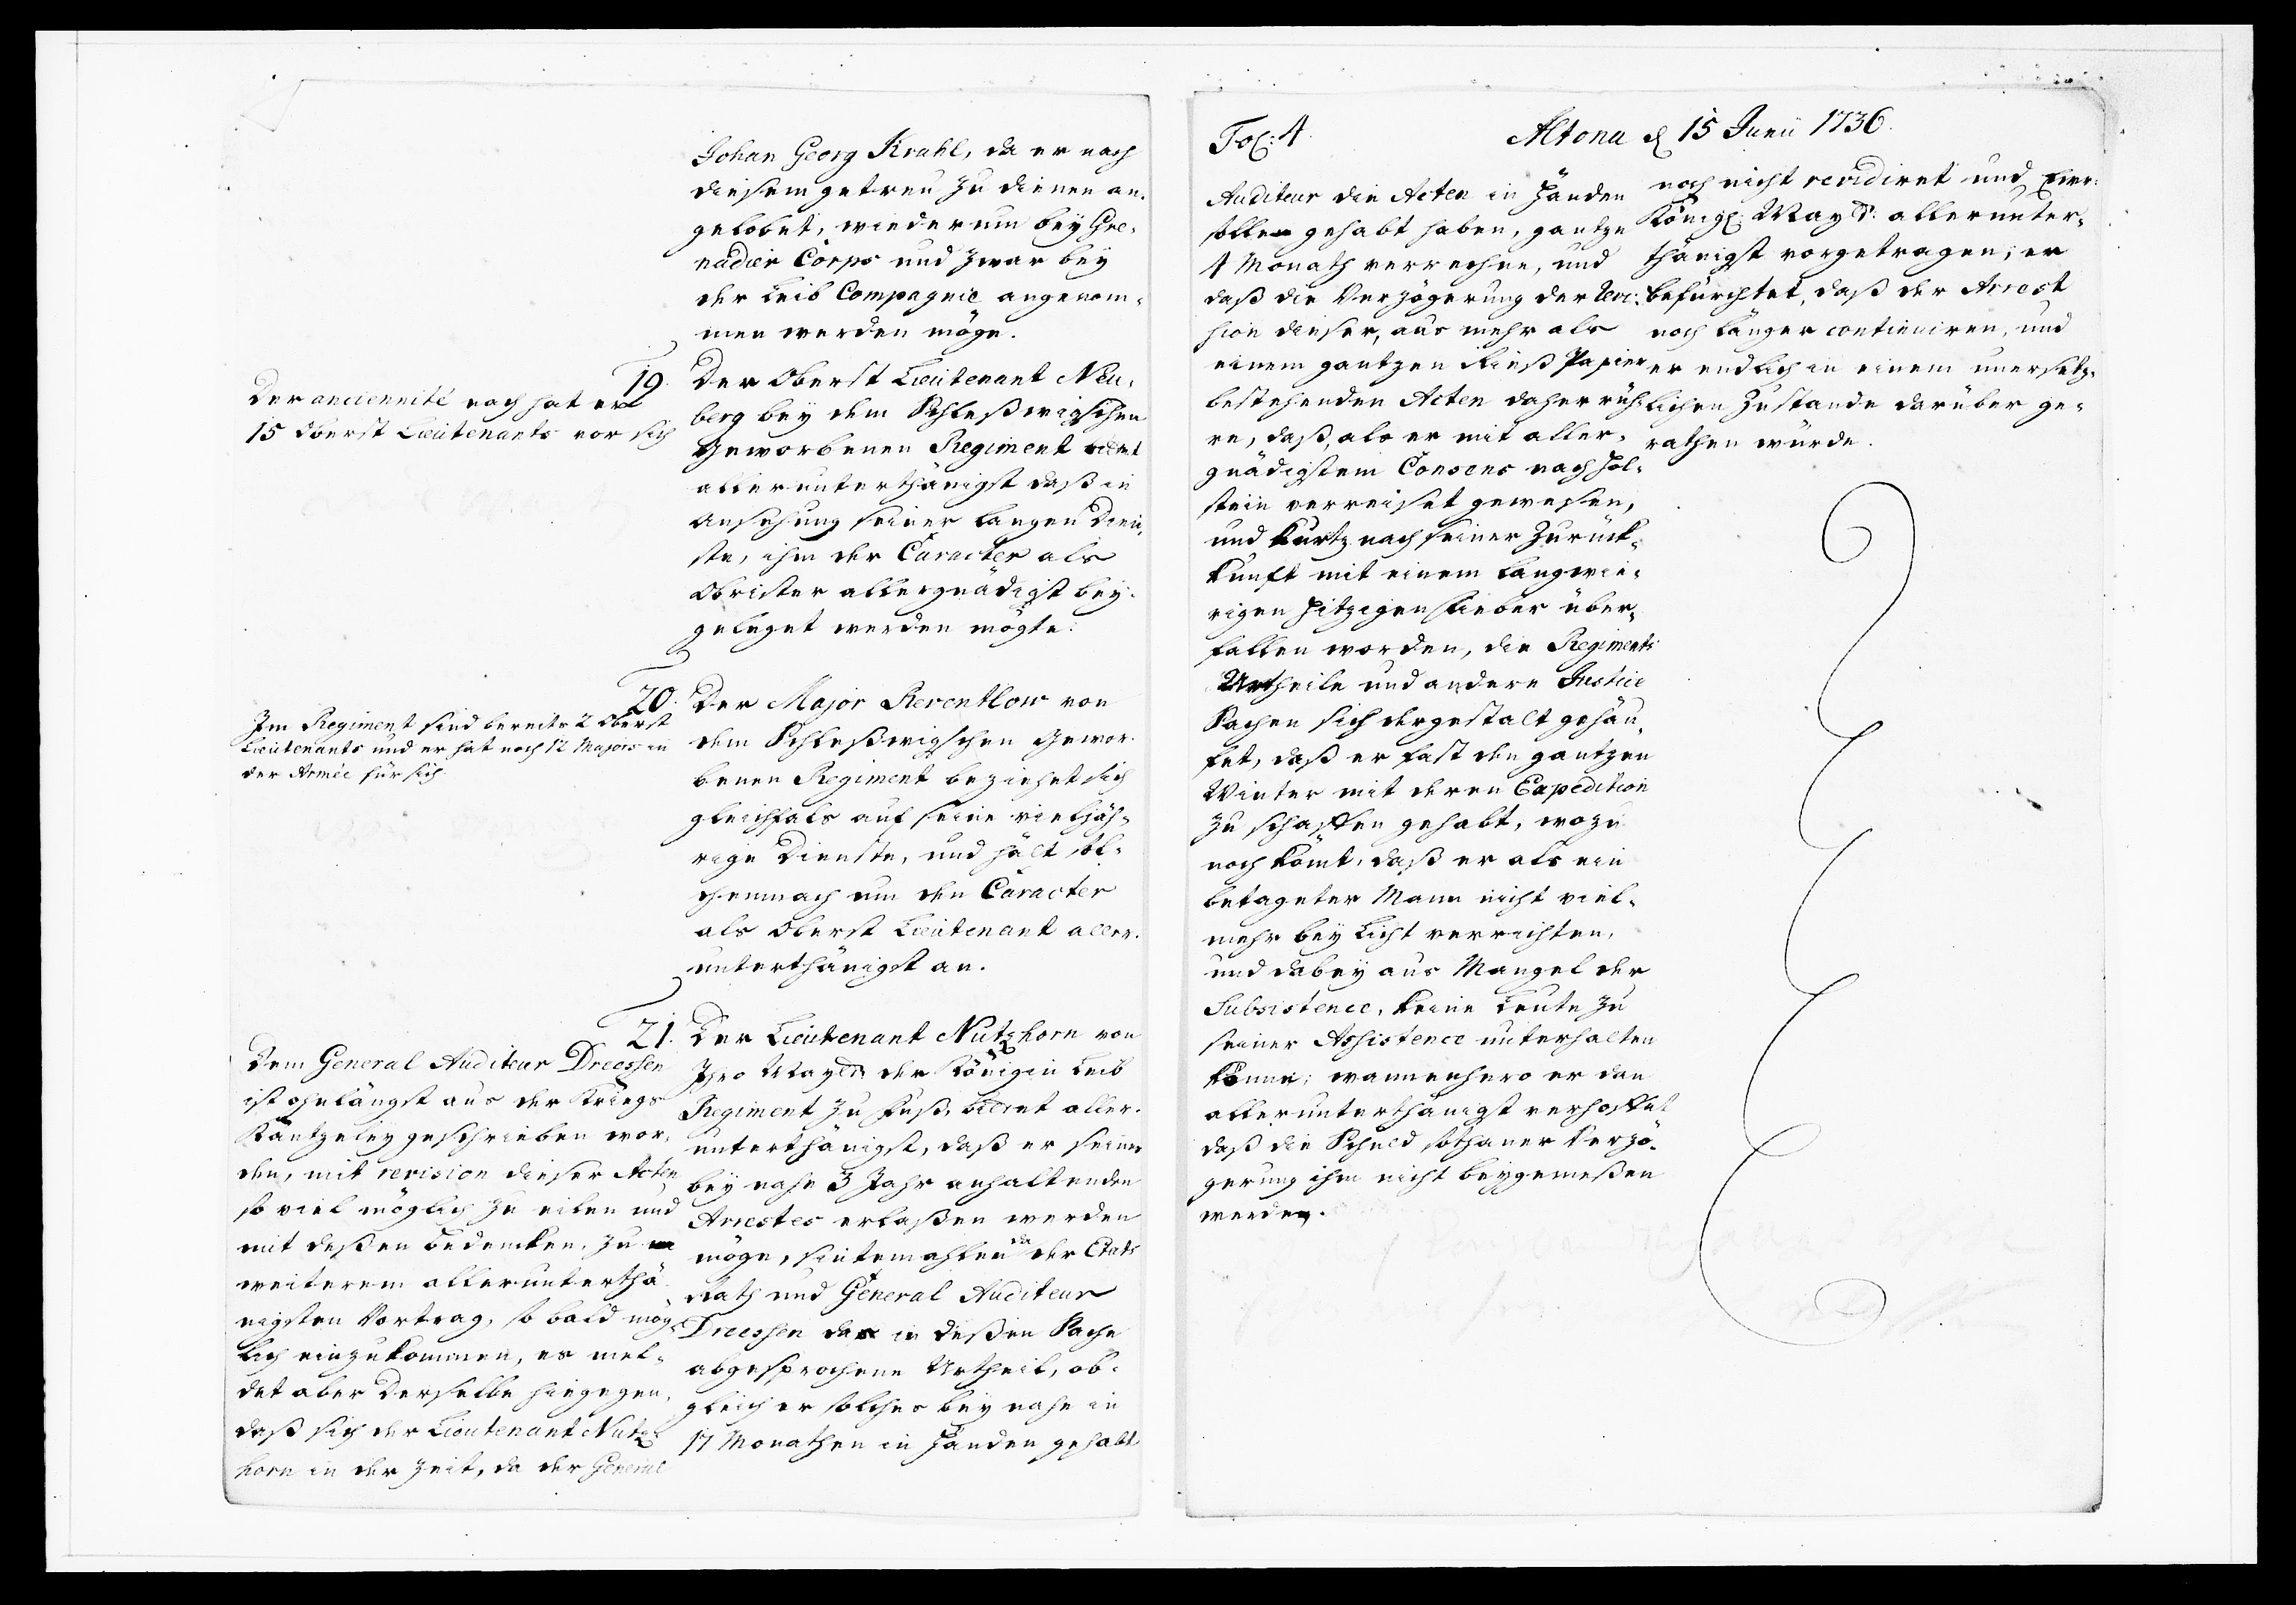 Johan Georg Krahl, da er nach
diesem getreu zu dienen an-
gelobet, wiederum bey Gre-
nadier Corps und zwar bey
der Leib Compagnie angenom-
men werden möge.
19.
Der anciennité nach hat er
15 Oberst Lieutenants vor sich
Der Oberst Lieutenant Neu-
berg bey dem Schleßwigschen
geworbenen Regiment bittet
allerunterthänigst daß in
Ansehung seiner langen Dien-
ste, ihm der Caracter als
Obrister allergnädigst bey-
geleget werden mögte.
20.
Im Regiment sind bereits 2 Oberst
Lieutenants und er hat noch 12 Majors in
der Armée für sich
Der Major Reventlow von
dem Schleßwigschen gewor-
benen Regiment beziehet sich
gleichfals auf seine vieljäh-
rige Dienste, und hält sol-
chemnach um den Caracter
als Oberst Lieutenant aller-
unterthänigst an.
21.
Dem General Auditeur Dreessen
ist ohnlängst aus der Kriegs
Cantzeley geschrieben wor-
den, mit revision dieser Acten
so viel möglich zu eilen und
mit deßen Bedencken, zu
weiterem allerunterthä-
nigsten Vortrag, so bald mög-
lich einzukommen, es mel-
det aber derselbe hingegen,
daß sich der Lieutenant Nutz-
horn in der Zeit, da der General
Der Lieutenant Nutzhorn von
Ihro Mayt. der Königin Leib
Regiment zu Fuß, bittet aller-
unterthänigst, daß er seines
bey nahe 3 Jahr anhaltenden
Arrestes erlaßen werden
möge, sintemahlen da der Etats
Rath und General Auditeur
Dreessen das in deßen Sache
abgesprochene Urtheil, ob-
gleich er solches bey nahe in
17 Monathen in Händen gehabt
Fol: 4.
Altona d 15 Junii 1736.
Auditeur die Acten in Händen
sollen gehabt haben, gantze
4 Monath verrechne, und
daß die Verzögerung der Revi-
sion dieser, aus mehr als
einem gantzen Rieß Papier
bestehenden Acten daher rüh-
re, daß, als er mit aller-
gnädigstem Consens nach Hol-
stein verreiset gewesen,
und kurtz nach seiner Zurück-
kunft mit einem langwie-
rigen hitzigen Fieber über-
fallen worden, die Regiments
Urtheile und andere Justice
Sachen sich dergestalt gehäu-
fet, daß er fast den gantzen
Winter mit deren Expedition
zu schaffen gehabt, wozu
noch kömt, daß er als ein
betageter Mann nicht viel-
mehr bey Licht verrichten,
und dabey aus Mangel der
Subsistence, keine Leute zu
seiner Assistence unterhalten
könne; wannenhero er dan
allerunterthänigst verhoffet
daß die Schuld sothaner Verzö-
gerung ihm nicht beygemeßen
werde.
noch nicht revidiret und Ewr:
Königl: Mayt: allerunter-
thänigst vorgetragen; er
befürchtet, daß der Arrest
noch länger continuiren, und
er endlich in einem unersetz-
lichen Zustande darüber ge-
rathen würde.